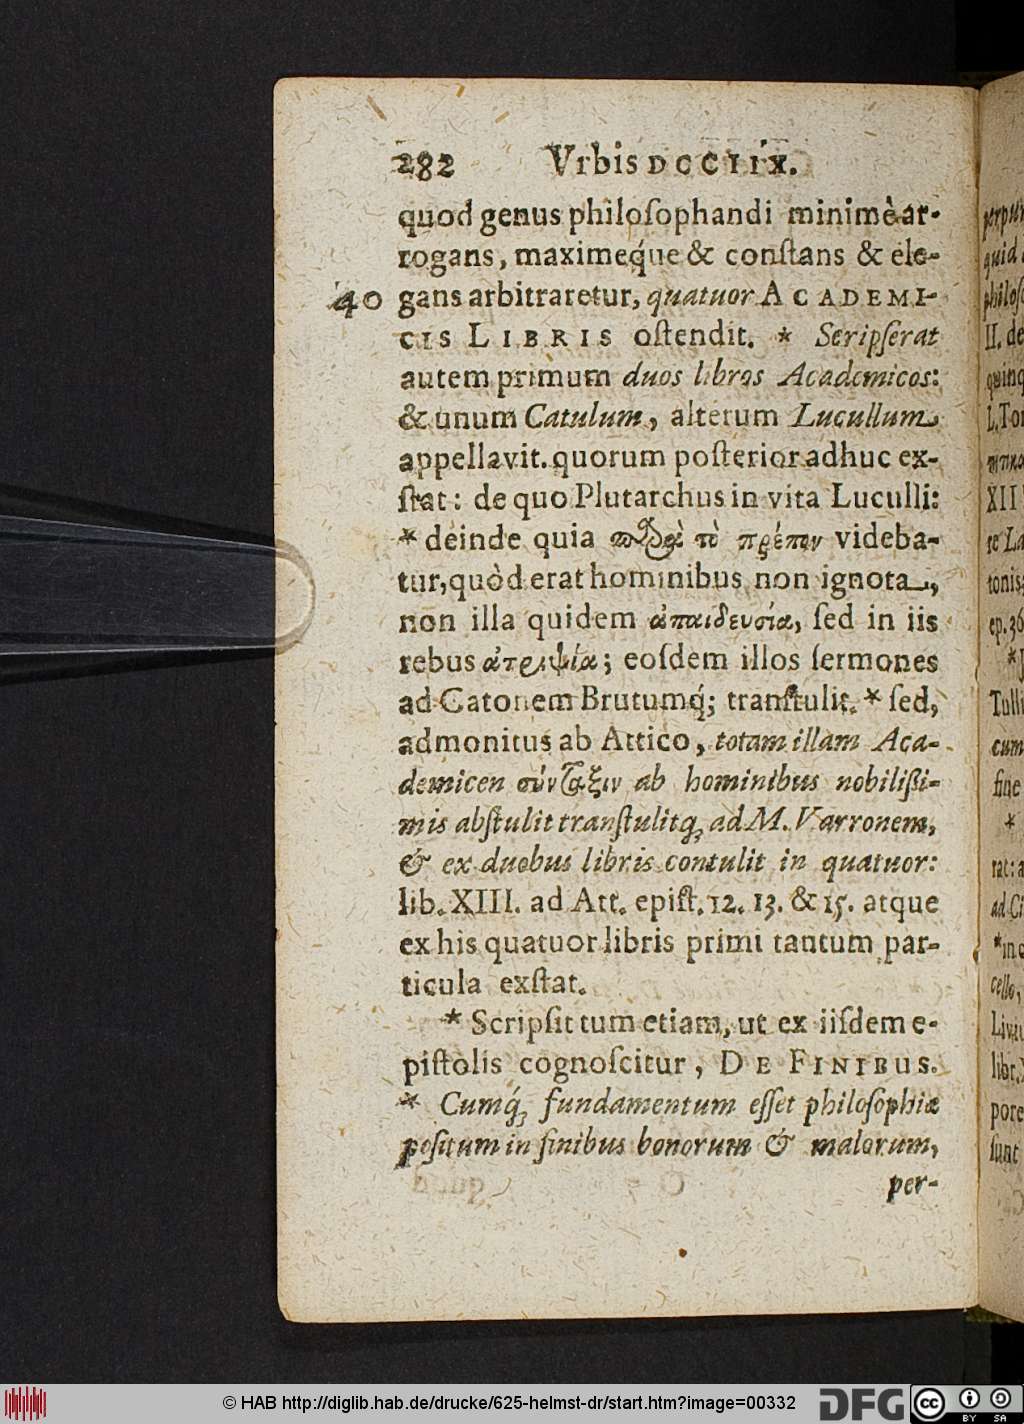 282 Vrbis DCCIIX.
quod genus philoſophandi minimè ar-
rogans, maximeq́ue & conſtans & ele-
40 gans arbitraretur, quatuor ACADEMI-
CIS LIBRIS oſtendit. * Scripſerat
autem primum duos libros Academicos:
& unum Catulum, alterum Lucullum
appellavit. quorum poſterior adhuc ex-
ſtat: de quo Plutarchus in vita Luculli:
* deinde quia παρὰ τὸ πρέπον videba-
tur, quòd erat hominibus non ignota,
non illa quidem ἀπαιδευσία, ſed in iis
rebus ἀτριψία; eoſdem illos ſermones
ad Catonem Brutumq́; tranſtulit. * ſed,
admonitus ab Attico, totam illam Aca-
demicen σύνταξιν ab hominibus nobilißi-
mis abſtulit tranſtulitq; ad M. Varronem,
& ex duobus libris contulit in quatuor:
lib. XIII. ad Att. epiſt. 12. 13. & 15. atque
ex his quatuor libris primi tantum par-
ticula exſtat.
* Scripſit tum etiam, ut ex iiſdem e-
piſtolis cognoſcitur, DE FINIBUS.
* Cumq́; fundamentum eſſet philoſophiæ
poſitum in finibus bonorum & malorum,
per-
quid
philoſ
II. de
quinq
L. Tor
XII
re La
tonis
ep. 36
Tulli
cum
fine
*
rat: a
ad Ci
cello,
libr.
pore
ſunt
© HAB http://diglib.hab.de/drucke/625-helmst-dr/start.htm?image=00332
DFG
cc
BY SA